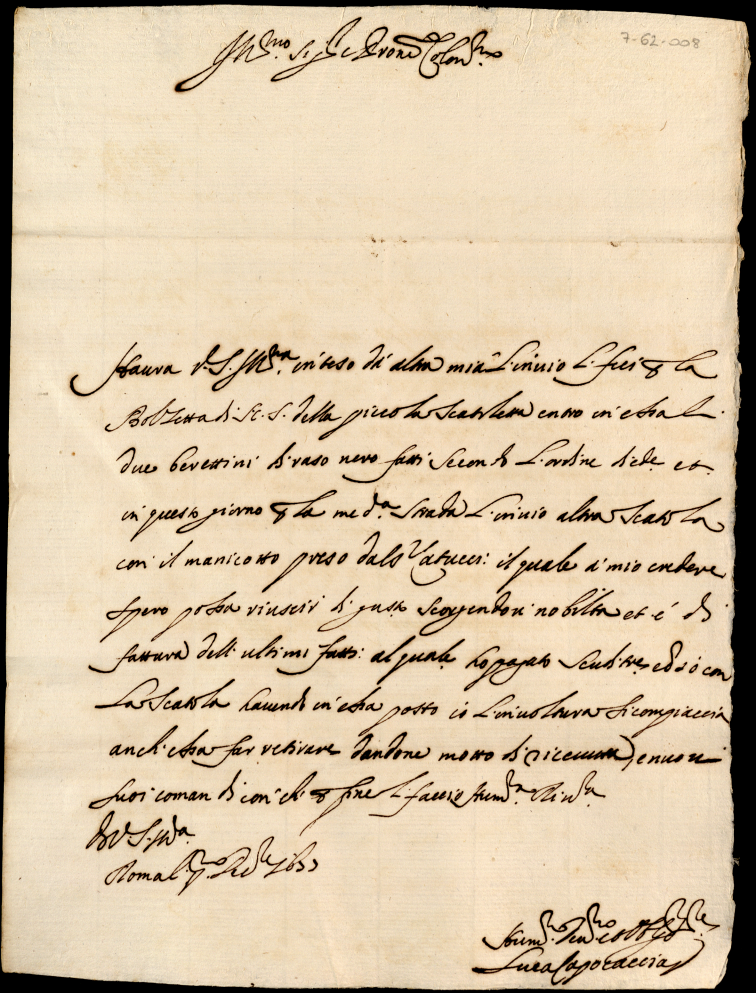 7-62-008
Ill.mo Sig.r e Prone Colen.mo
Haura V.S. Ill.ma inteso da altra mia L'inuio Li feci p la
della piccola Scatoletta entro in essa li
due berettini di raso nero fatti Secondo L'ordine et
in questo giorno p la med.a Strada L'inuio altra Scatola
con il manicotto preso dal S.r il quale a mio credere
spero possa riuscir di gusto scorgendoui nobilta et è di
fattura dell'ultimi fatti: al quale ho pagato scudi tre con
La Scatola hauendo in essa posto io L'inuoltura si compiaccia
anch'essa far retirare dandone motto di riceuuta, e nuoui
suoi comandi con che p fine Li faccio Hum.a Riu.a
Di V.S. Ill.ma
Roma
Luca Capocaccia